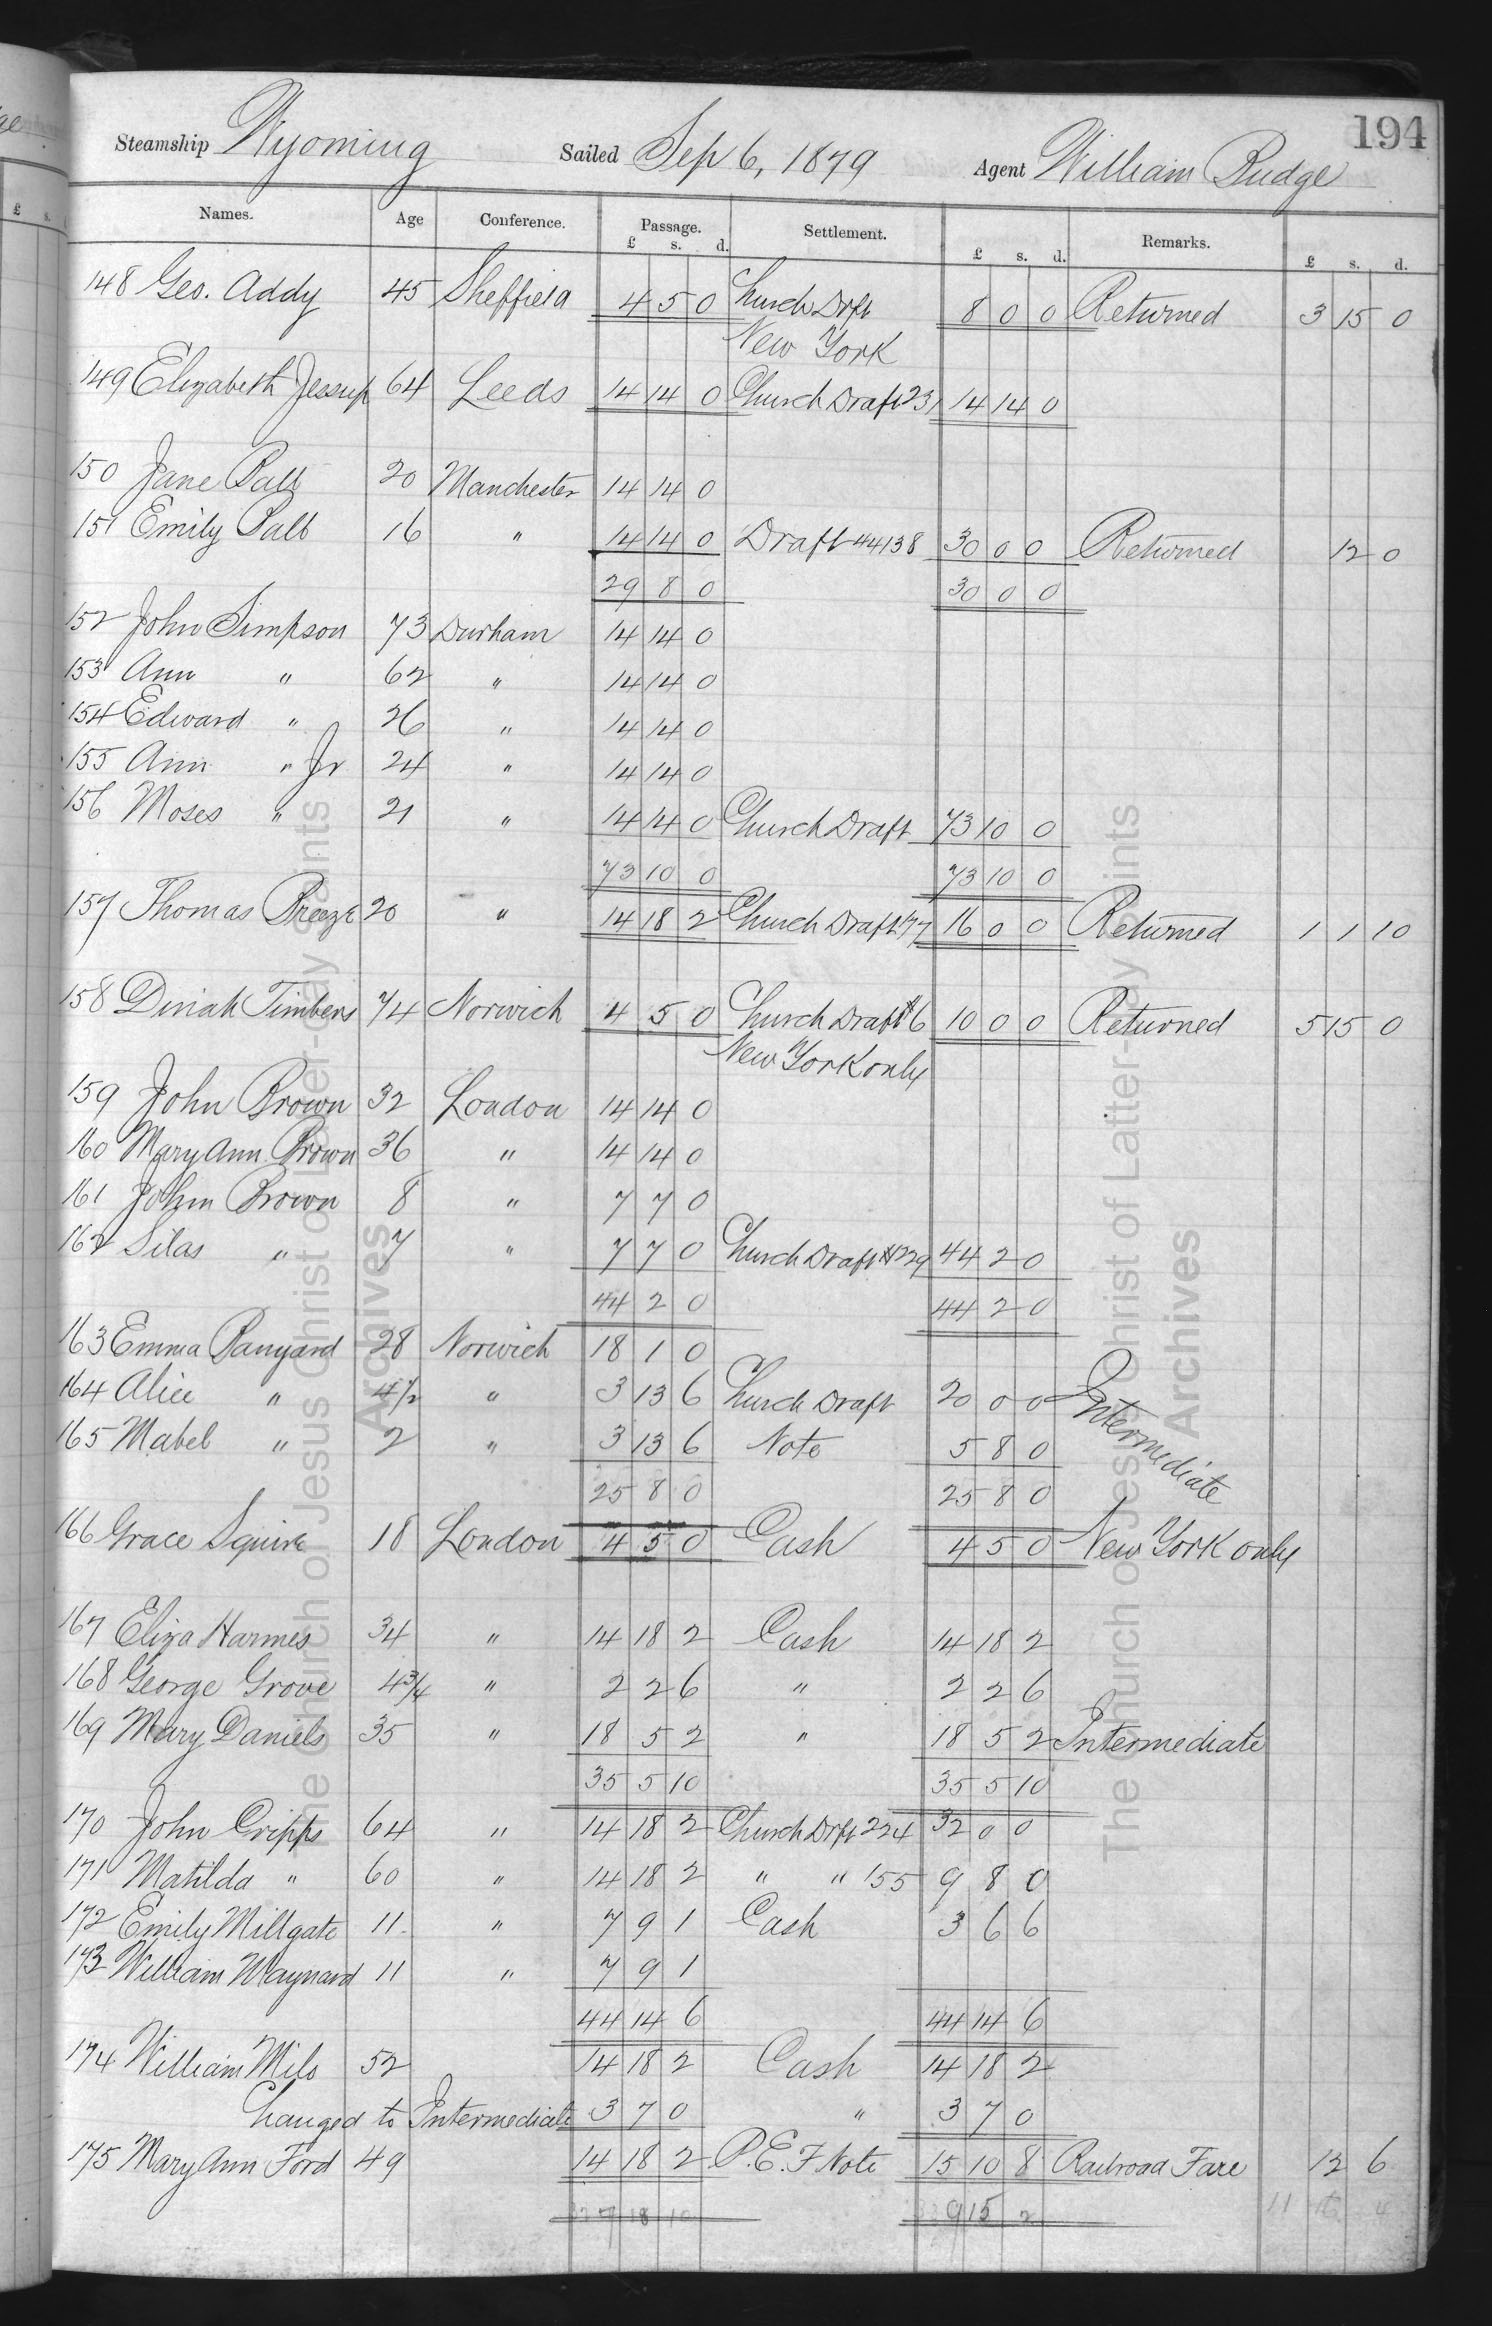 194
Steamship Wyoming Sailed Sep 6, 1879 Agent William Budge
Names. Age Conference. Passage. £ s. d. Settlement. £ s. d. Remarks. £ s. d.
148 Geo. Addy 45 Sheffield 4 5 0 Church Drft 8 0 0 Returned 3 15 0
New York
149 Elizabeth Jessup 64 Leeds 14 14 0 Church Draft 231 14 14 0
150 Jane 20 Manchester 14 14 0
151 Emily 16 " 14 14 0 Draft 44138 30 0 0 Returned 12 0
29 8 0 30 0 0
152 John Simpson 73 Durham 14 14 0
153 Ann " 62 " 14 14 0
154 Edward " 26 " 14 14 0
155 Ann " Jr 24 " 14 14 0
156 Moses " 21 " 14 14 0 Church Draft 73 10 0
73 10 0 73 10 0
157 Thomas Breeze 20 " 14 18 2 Church Draft 177 16 0 0 Returned 1 1 10
158 Dinah Timbers 74 Norwich 4 5 0 Church Draft 6 10 0 0 Returned 5 15 0
New York only
159 John Brown 32 London 14 14 0
160 Mary Ann Brown 36 " 14 14 0
161 John Brown 8 " 7 7 0
162 Silas " 7 " 7 7 0 Church Draft #229 44 2 0
44 2 0 44 2 0
163 Emma Panyard 28 Norwich 18 1 0
164 Alice " 4½ " 3 13 6 Church Draft 20 0 0 Intermediate
165 Mabel " 2 " 3 13 6 Note 5 8 0
25 8 0 25 8 0
166 Grace Squire 18 London 4 5 0 Cash 4 5 0 New York only
167 Eliza Harmes 34 " 14 18 2 Cash 14 18 2
168 George Grove 4¾ " 2 2 6 " 2 2 6
169 Mary Daniels 35 " 18 5 2 " 18 5 2 Intermediate
35 5 10 35 5 10
170 John Cripps 64 " 14 18 2 Church Drft 224 32 0 0
171 Matilda " 60 " 14 18 2 " " 155 9 8 0
172 Emily Millgate 11 " 7 9 1 Cash 3 6 6
173 William Maynard 11 " 7 9 1
44 14 6 44 14 6
174 William Mils 52 14 18 2 Cash 14 18 2
Changed to Intermediate 3 7 0 " 3 7 0
175 Mary Ann Ford 49 14 18 2 P.E.F Note 15 10 8 Railroad Fare 12 6
The Church of Jesus Christ of Latter-day Saints
Archives
The Church of Jesus Christ of Latter-day Saints
Archives